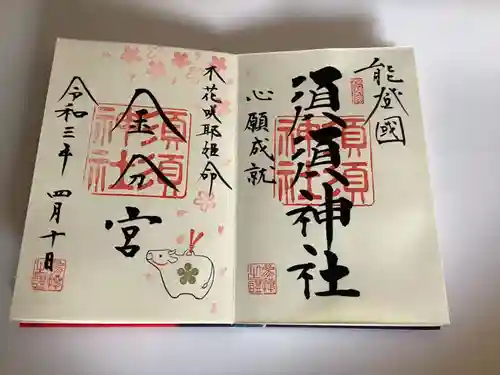 能登國
須須神社
心願成就
須須
神社
木花咲耶姫命
金分宮
須須
神社
令和三年 四月十日